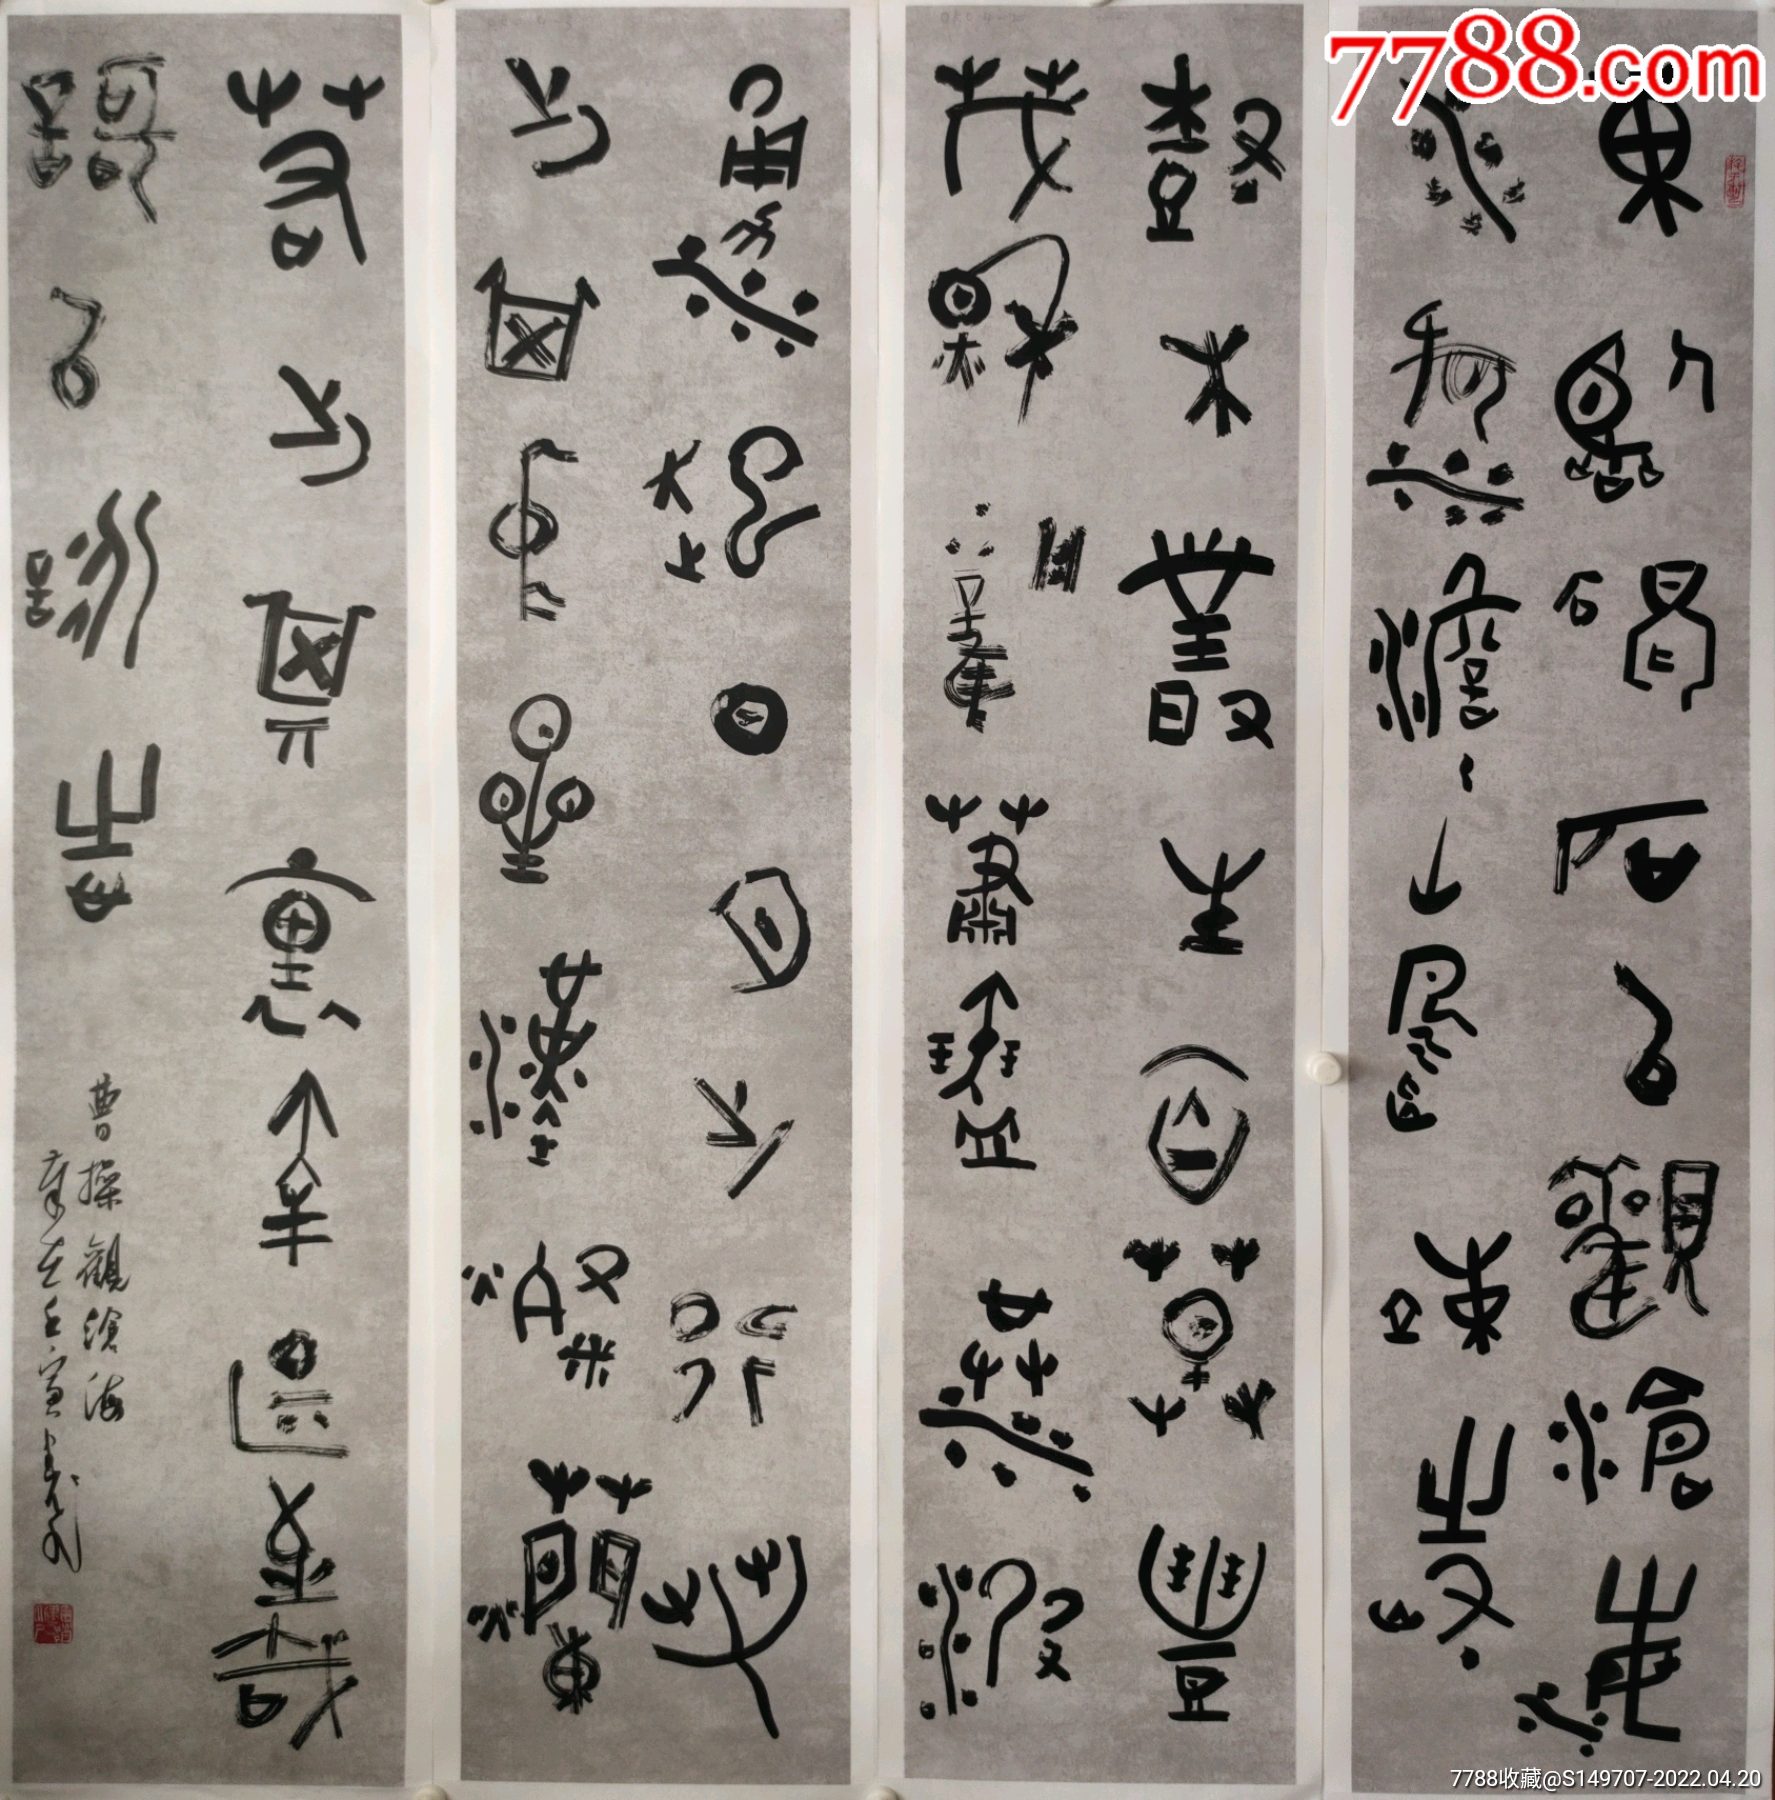 7788.com
東臨碣石以觀滄海
水何澹澹山島竦峙
樹木叢生百草豐
茂秋風蕭瑟洪波
湧起日月之行若
出其中星漢燦爛
若出其裏幸甚至哉
歌以詠志
曹操觀滄海
壬寅
7788收藏@S149707-2022.04.20